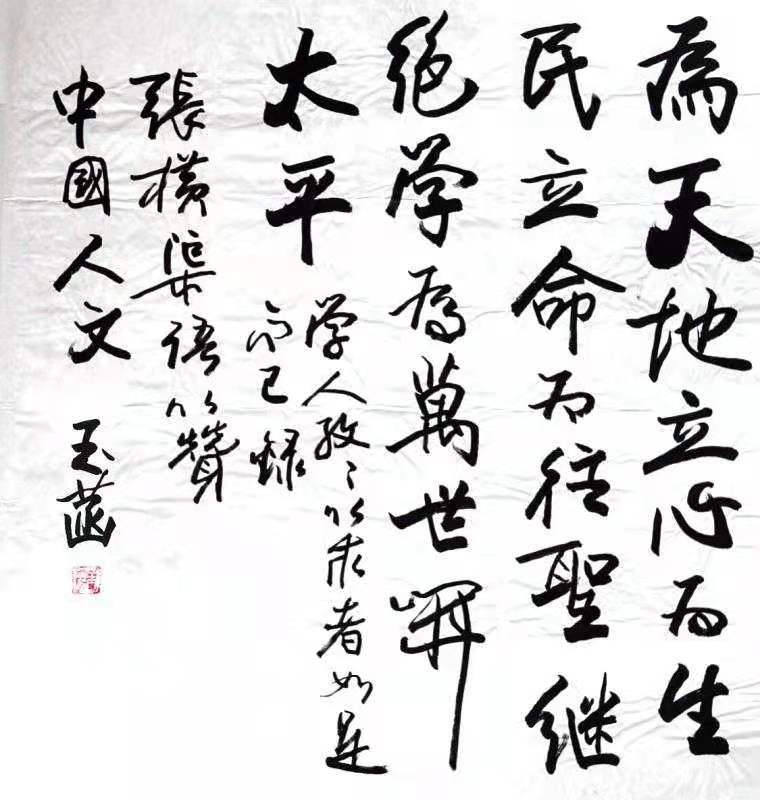 為天地立心為生
民立命為往聖継
絕学為萬世開
太平
学人孜〻以求者如是
而已録
張橫渠語以贊
中國人文 玉